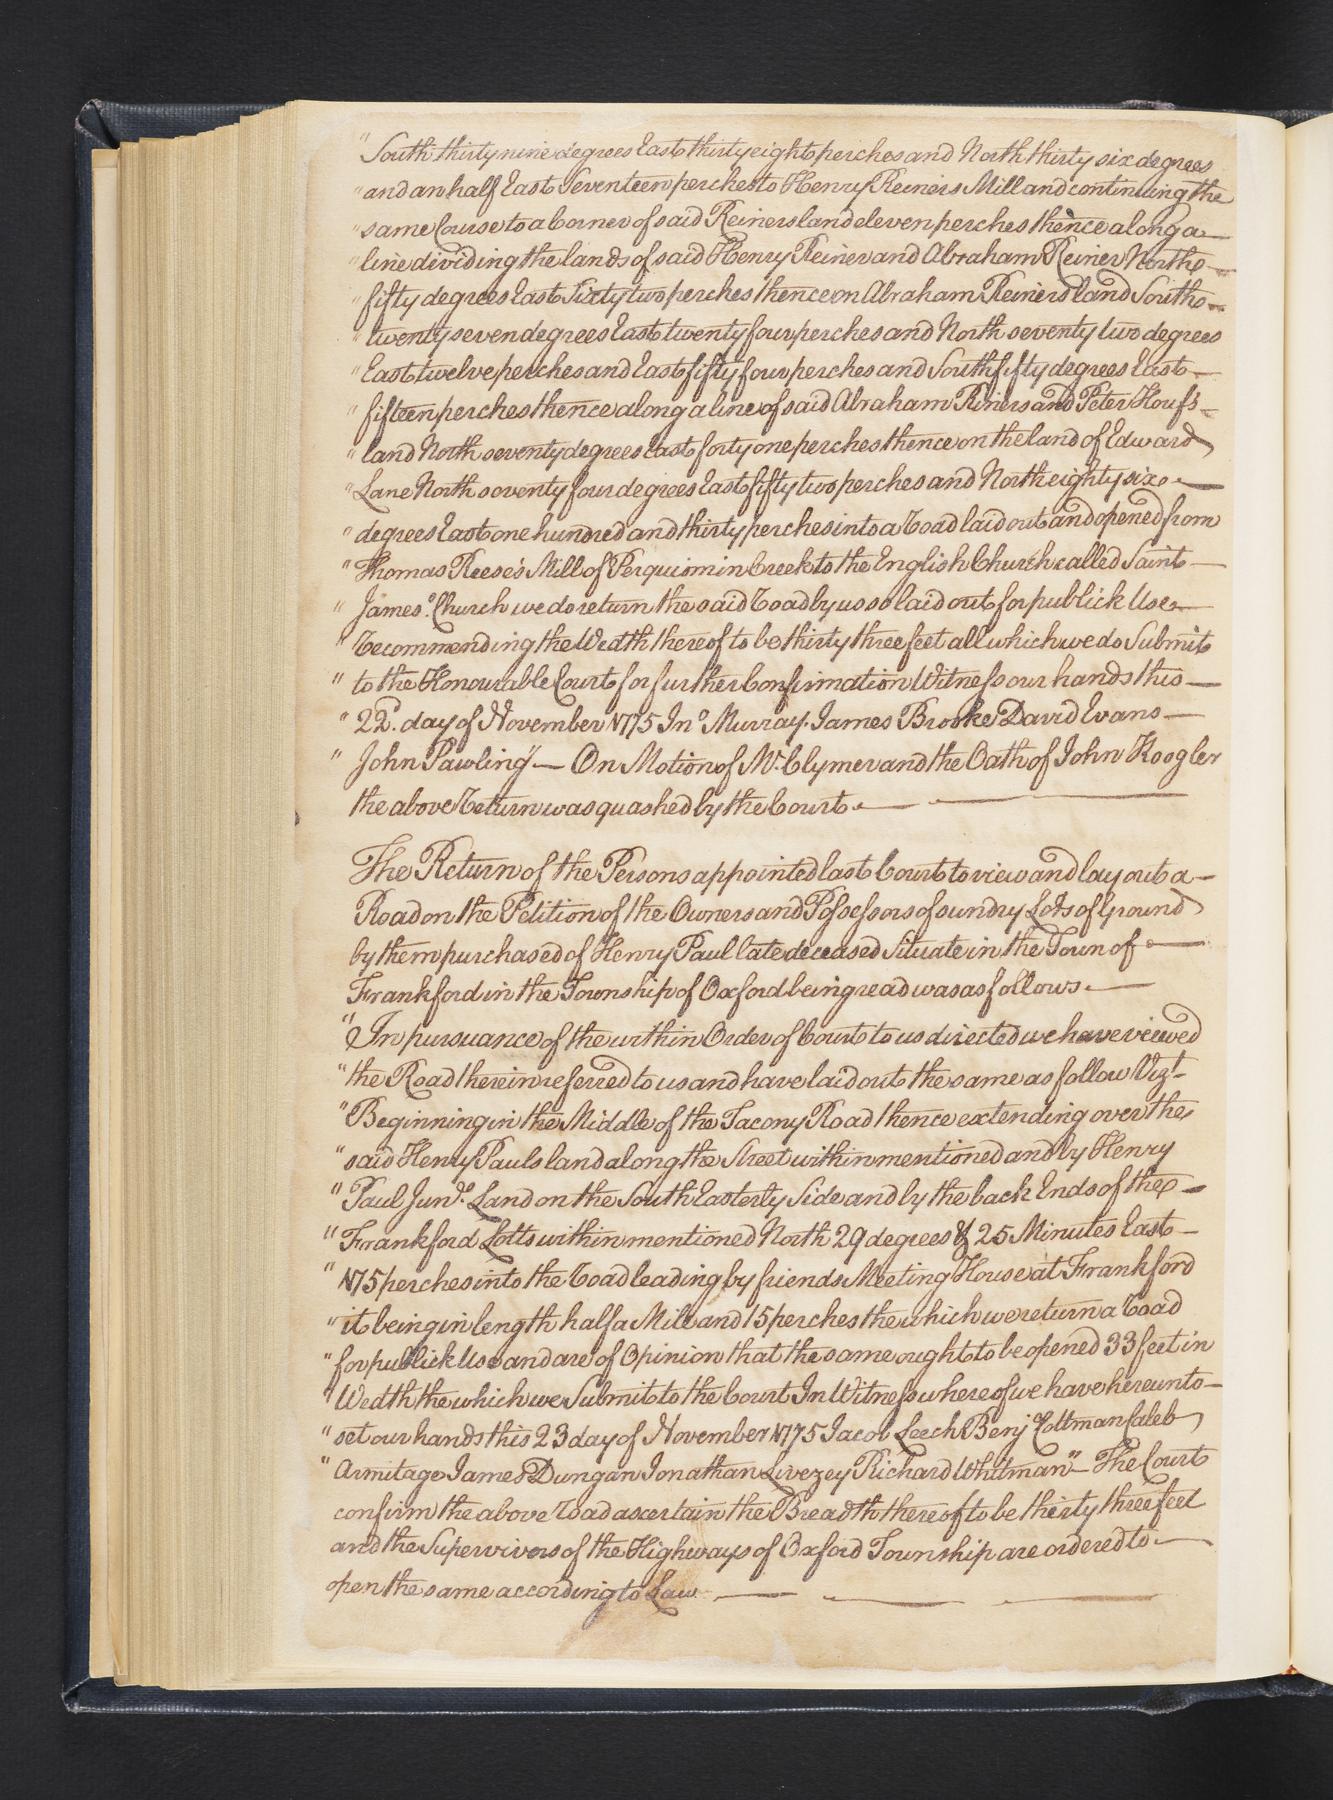 " South thirty nine degrees East thirty eight perches and North thirty six degrees
" and an half East Seventeen perches to Henry Reiners Mill and continuing the
" same Course to a Corner of said Reiners land eleven perches thence along a
" line dividing the lands of said Henry Reiner and Abraham Reiner North
" fifty degrees East Sixty two perches thence on Abraham Reiners land South
" twenty seven degrees East twenty four perches and North seventy two degrees
" East twelve perches and East fifty four perches and South fifty degrees East
" fifteen perches thence along a line of said Abraham Riners and Peter Houfs
" land North seventy degrees East forty one perches thence on the land of Edward
" Lane North seventy four degrees East fifty two perches and North eighty six
" degrees East one hundred and thirty perches into a road laid out and opened from
" Thomas Reese's Mill of Perquiomin Creek to the English Church called Saint
" James's Church we do return the said road by us so laid out for publick Use
" recommending the Wedth thereof to be thirty three feet all which we do Submit
" to the Honourable Court for further Confirmation Witness our hands this
" 22d. day of November 1775 Jno Murray. James Brooke David Evans
" John Pawling" — On Motion of Mr. Clymer and the Oath of John Koogler
the above return was quashed by the Court
The Return of the Persons appointed last Court to view and lay out a
Road on the Petition of the Owners and Possessors of sundry Lots of Ground
by them purchased of Henry Paul late deceased Situate in the Town of
Frankford in the Township of Oxford being read was as follows
" In pursuance of the within Order of Court to us directed we have viewed
" the Road therein referred to us and have laid out the same as follow Vizt
" Beginning in the Middle of the Tacony Road thence extending over the
" said Henry Pauls land along the Street within mentioned and by Henry
" Paul Junrs. Land on the South Easterly Side and by the back Ends of the
" Frankford Lotts within mentioned North 29 degrees & 25 Minutes East
" 175 perches into the road leading by friends Meeting House at Frankford
" it being in length half a Mile and 15 perches the which we return a road
" for publick Use and are of Opinion that the same ought to be opened 33 feet in
" Wedth the which we Submit to the Court In Witness whereof we have hereunto
" set our hands this 23 day of November 1775 Jacob Leech Benj Cottman Caleb
" Armitage James Dungan Jonathan Livezey Richard Whitman" — The Court
confirm the above road ascertain the Breadth thereof to be thirty three feet
and the Supervivors of the Highways of Oxford Township are ordered to
open the same according to Law